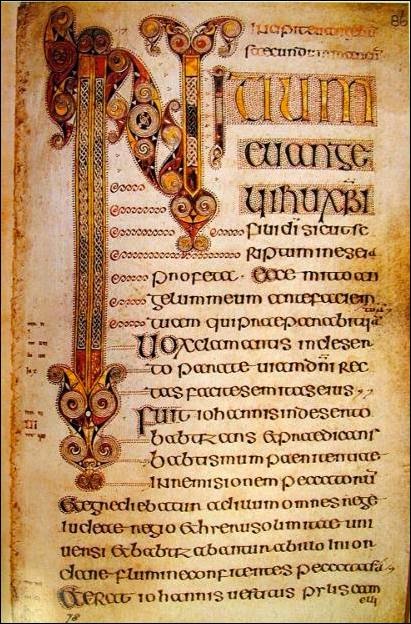 86
INITIUM
euange
lii ihu xpi
fili di sicut sc
riptum in esaia
profeta Ecce mitto an
gelum meum ante faciem
tuam qui praeparabit
Uox clamantis in deser
to parate uiam dni rec
tas facite semitas eius
Fuit iohannis in deserto
babtizans et praedicans
babtismum paenitentiae
in remisionem
Et egrediebatur ad illum omnes
iudeae regio et hierusolimitae uni
uersi et babtizabantur ab illo in ior
dane flumine confitentes peccata
Et erat iohannis uestitus pylis cam
elli
78